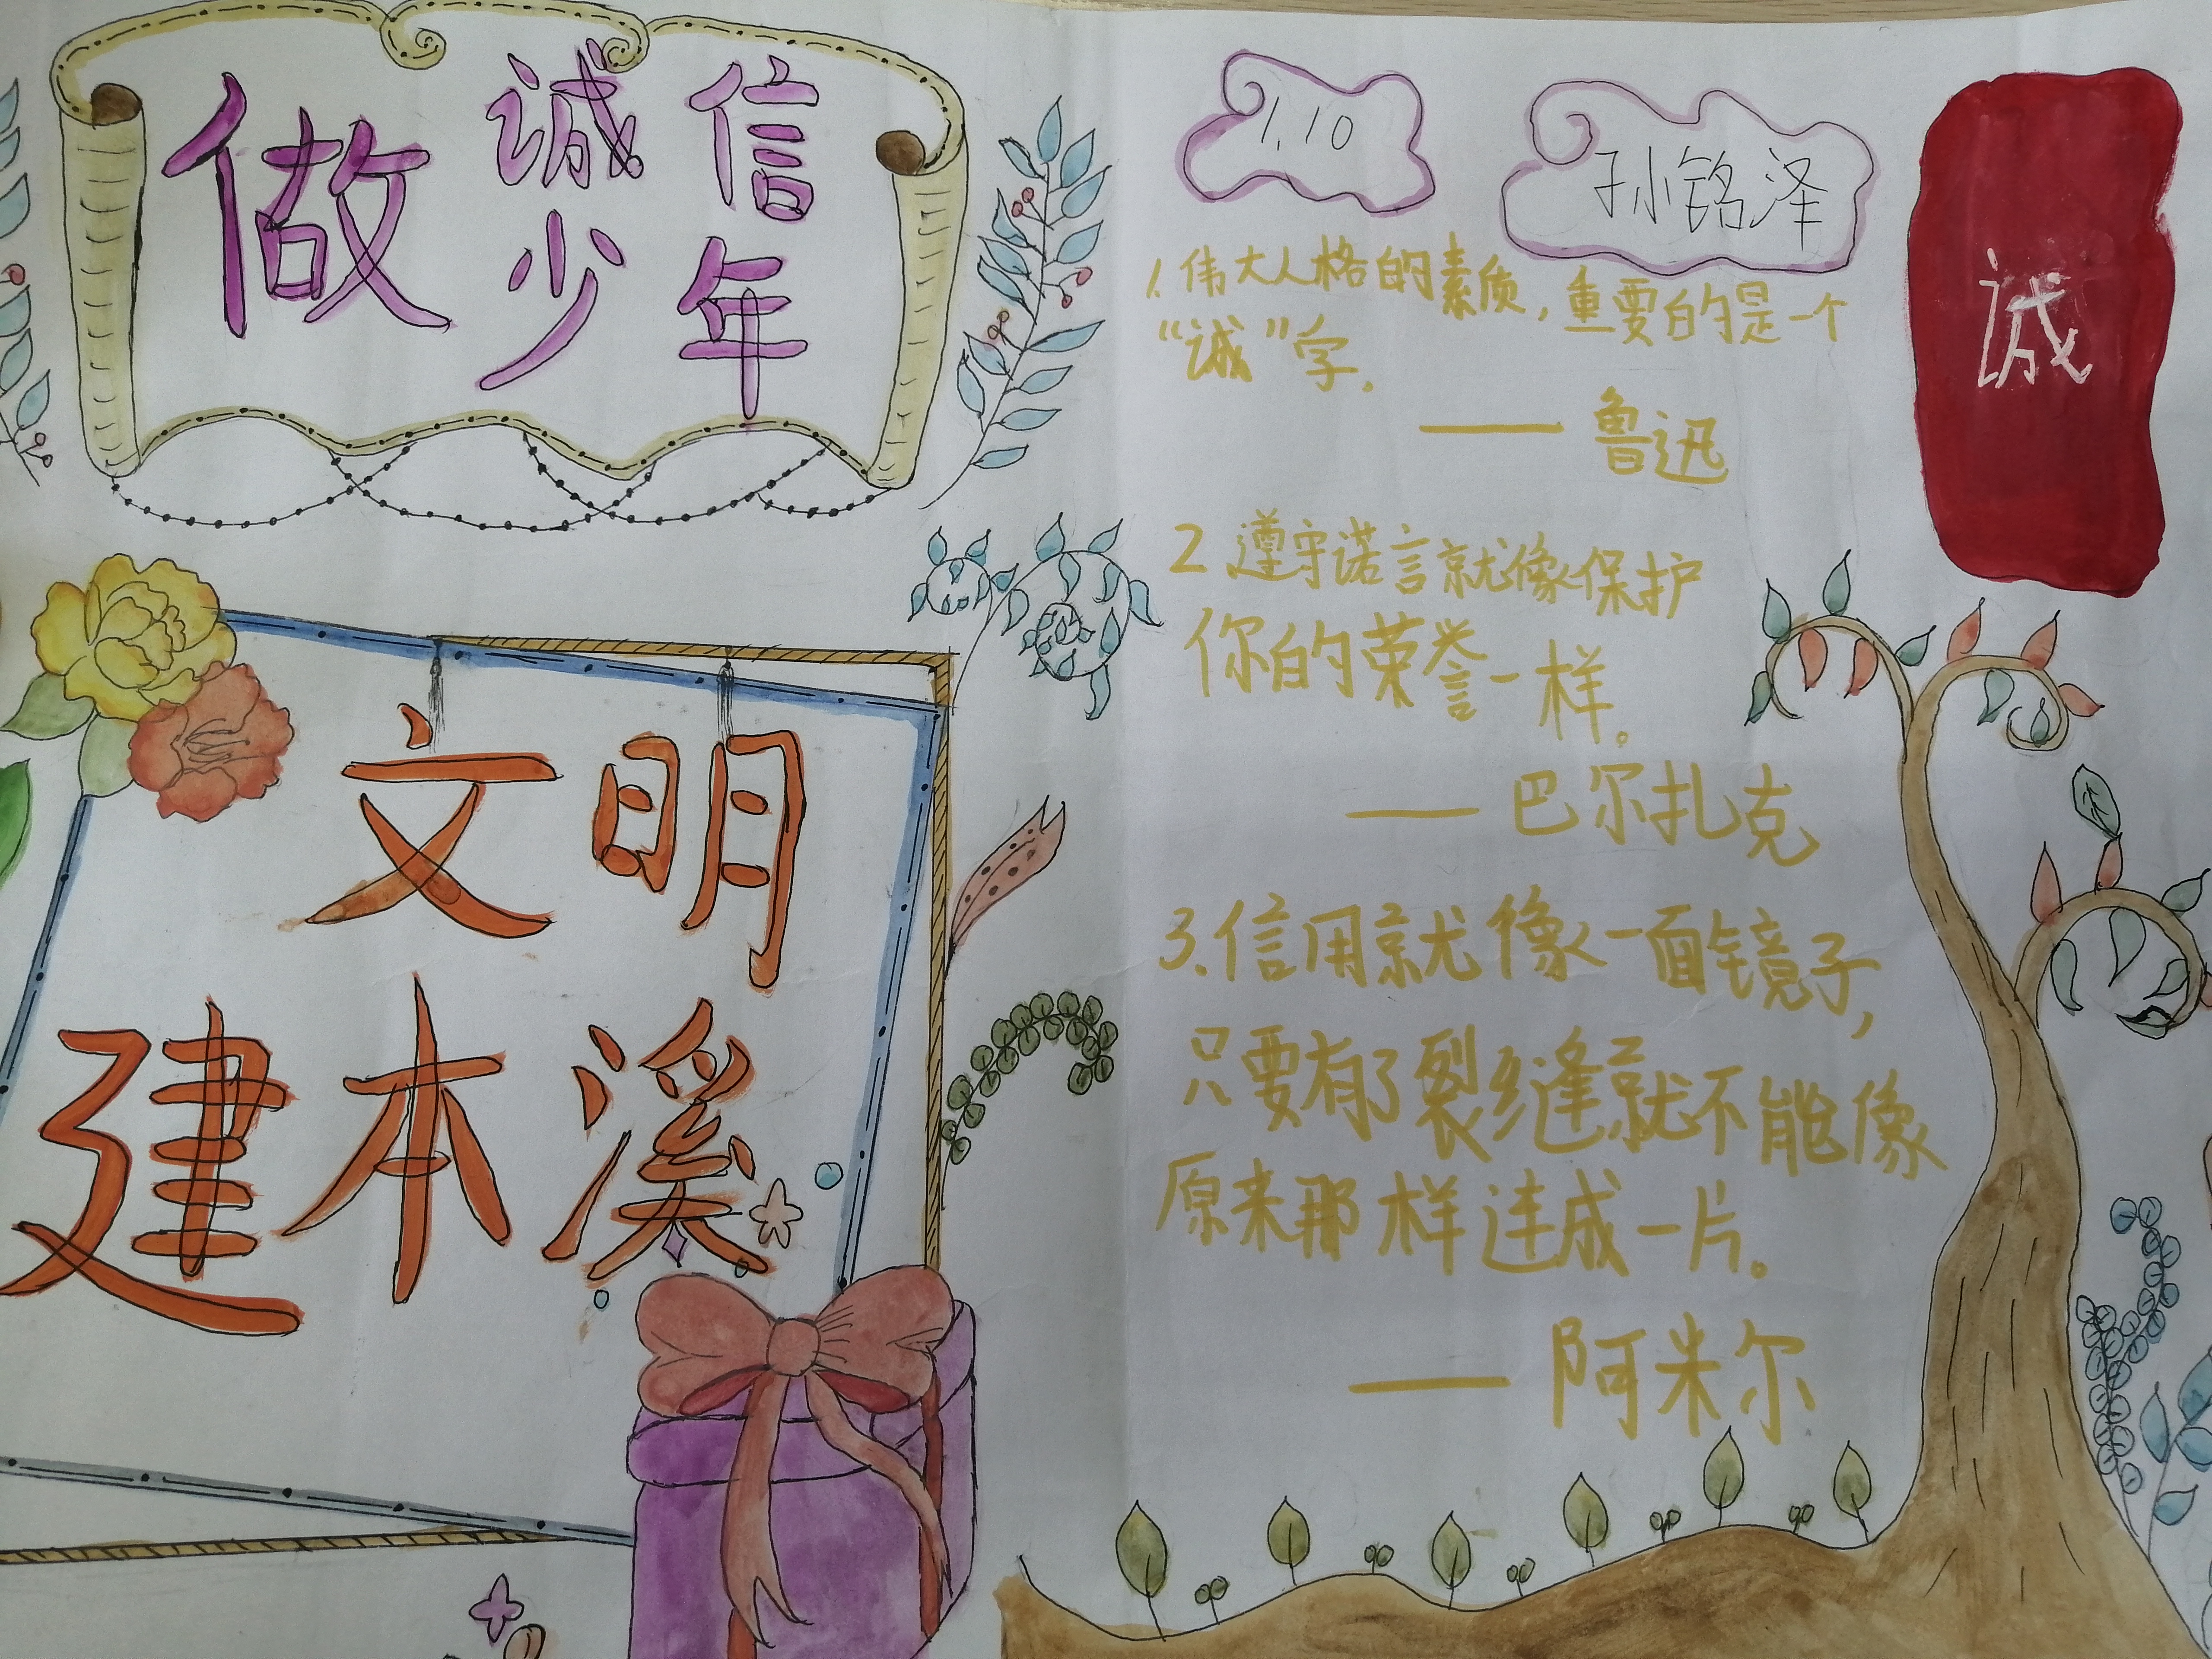 做诚信
少年
文明
建本溪
1.10
孙铭泽
诚
1.伟大人格的素质，重要的是一个
“诚”字。
——鲁迅
2 遵守诺言就像保护
你的荣誉一样。
——巴尔扎克
3.信用就像一面镜子，
只要有了裂缝就不能像
原来那样连成一片。
——阿米尔